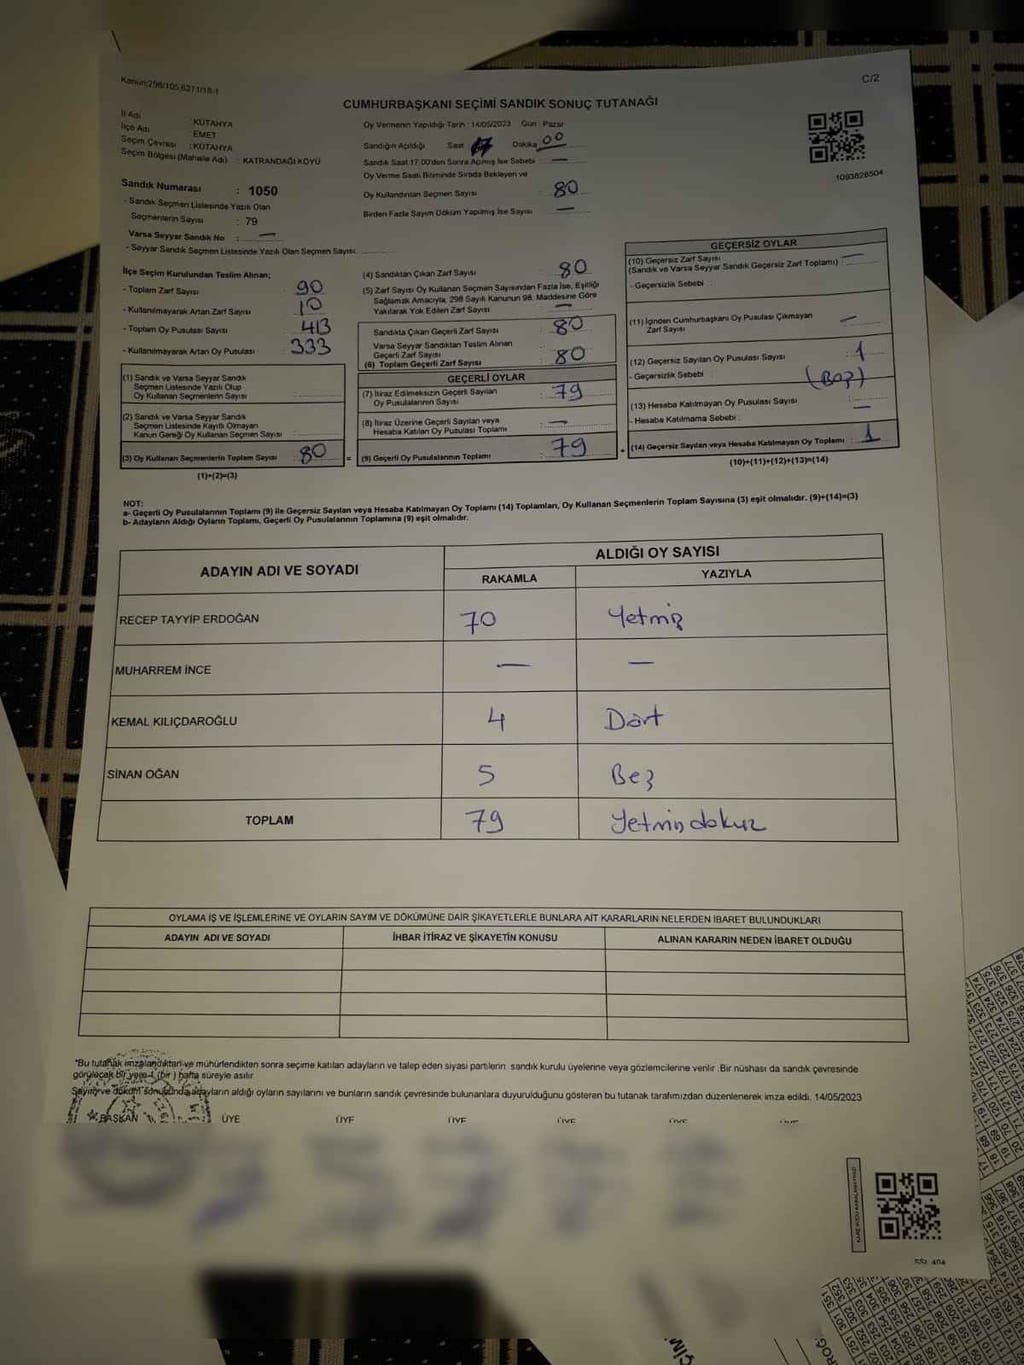 Kanun:298/105,6271/18-1
C/2
CUMHURBAŞKANI SEÇİMİ SANDIK SONUÇ TUTANAĞI
İl Adı : KÜTAHYA
İlçe Adı : EMET
Seçim Çevresi : KÜTAHYA
Seçim Bölgesi (Mahalle Adı) : KATRANDAĞI KÖYÜ
Sandık Numarası : 1050
- Sandık Seçmen Listesinde Yazılı Olan
Seçmenlerin Sayısı : 79
Varsa Seyyar Sandık No : —
- Seyyar Sandık Seçmen Listesinde Yazılı Olan Seçmen Sayısı:
Oy Vermenin Yapıldığı Tarih : 14/05/2023 Gün : Pazar
Sandığın Açıldığı Saat 17 Dakika 00
Sandık Saat 17.00'den Sonra Açılmış İse Sebebi —
Oy Verme Saati Bitiminde Sırada Bekleyen ve
Oy Kullandırılan Seçmen Sayısı 80
Birden Fazla Sayım Döküm Yapılmış İse Sayısı —
1093826504
İlçe Seçim Kurulundan Teslim Alınan;
- Toplam Zarf Sayısı : 90
- Kullanılmayarak Artan Zarf Sayısı : 10
- Toplam Oy Pusulası Sayısı : 413
- Kullanılmayarak Artan Oy Pusulası : 333
(1) Sandık ve Varsa Seyyar Sandık
Seçmen Listesinde Yazılı Olup
Oy Kullanan Seçmenlerin Sayısı
(2) Sandık ve Varsa Seyyar Sandık
Seçmen Listesinde Kayıtlı Olmayan
Kanun Gereği Oy Kullanan Seçmen Sayısı
(3) Oy Kullanan Seçmenlerin Toplam Sayısı 80
(1)+(2)=(3)
(4) Sandıktan Çıkan Zarf Sayısı : 80
(5) Zarf Sayısı Oy Kullanan Seçmen Sayısından Fazla İse, Eşitliği
Sağlamak Amacıyla, 298 Sayılı Kanunun 98. Maddesine Göre
Yakılarak Yok Edilen Zarf Sayısı : —
Sandıkta Çıkan Geçerli Zarf Sayısı : 80
Varsa Seyyar Sandıktan Teslim Alınan
Geçerli Zarf Sayısı
(6) Toplam Geçerli Zarf Sayısı : 80
GEÇERLİ OYLAR
(7) İtiraz Edilmeksizin Geçerli Sayılan
Oy Pusulalarının Sayısı : 79
(8) İtiraz Üzerine Geçerli Sayılan veya
Hesaba Katılan Oy Pusulası Toplamı : —
= (9) Geçerli Oy Pusulalarının Toplamı : 79 +
GEÇERSİZ OYLAR
(10) Geçersiz Zarf Sayısı
(Sandık ve Varsa Seyyar Sandık Geçersiz Zarf Toplamı) : —
- Geçersizlik Sebebi :
(11) İçinden Cumhurbaşkanı Oy Pusulası Çıkmayan
Zarf Sayısı : —
(12) Geçersiz Sayılan Oy Pusulası Sayısı : 1
- Geçersizlik Sebebi : (Boş)
(13) Hesaba Katılmayan Oy Pusulası Sayısı : —
- Hesaba Katılmama Sebebi :
(14) Geçersiz Sayılan veya Hesaba Katılmayan Oy Toplamı : 1
(10)+(11)+(12)+(13)=(14)
NOT:
a- Geçerli Oy Pusulalarının Toplamı (9) ile Geçersiz Sayılan veya Hesaba Katılmayan Oy Toplamı (14) Toplamları, Oy Kullanan Seçmenlerin Toplam Sayısına (3) eşit olmalıdır. (9)+(14)=(3)
b- Adayların Aldığı Oyların Toplamı, Geçerli Oy Pusulalarının Toplamına (9) eşit olmalıdır.
ADAYIN ADI VE SOYADI ALDIĞI OY SAYISI
RAKAMLA YAZIYLA
RECEP TAYYİP ERDOĞAN 70 Yetmiş
MUHARREM İNCE — —
KEMAL KILIÇDAROĞLU 4 Dört
SİNAN OĞAN 5 Beş
TOPLAM 79 Yetmiş dokuz
OYLAMA İŞ VE İŞLEMLERİNE VE OYLARIN SAYIM VE DÖKÜMÜNE DAİR ŞİKAYETLERLE BUNLARA AİT KARARLARIN NELERDEN İBARET BULUNDUKLARI
ADAYIN ADI VE SOYADI İHBAR İTİRAZ VE ŞİKAYETİN KONUSU ALINAN KARARIN NEDEN İBARET OLDUĞU
*Bu tutanak imzalandıktan ve mühürlendikten sonra seçime katılan adayların ve talep eden siyasi partilerin sandık kurulu üyelerine veya gözlemcilerine verilir .Bir nüshası da sandık çevresinde
görülecek bir yere 1 (bir ) hafta süreyle asılır.
Sayım ve döküm sonucunda adayların aldığı oyların sayılarını ve bunların sandık çevresinde bulunanlara duyurulduğunu gösteren bu tutanak tarafımızdan düzenlenerek imza edildi. 14/05/2023
BAŞKAN ÜYE ÜYE ÜYE ÜYE ÜYE ÜYE